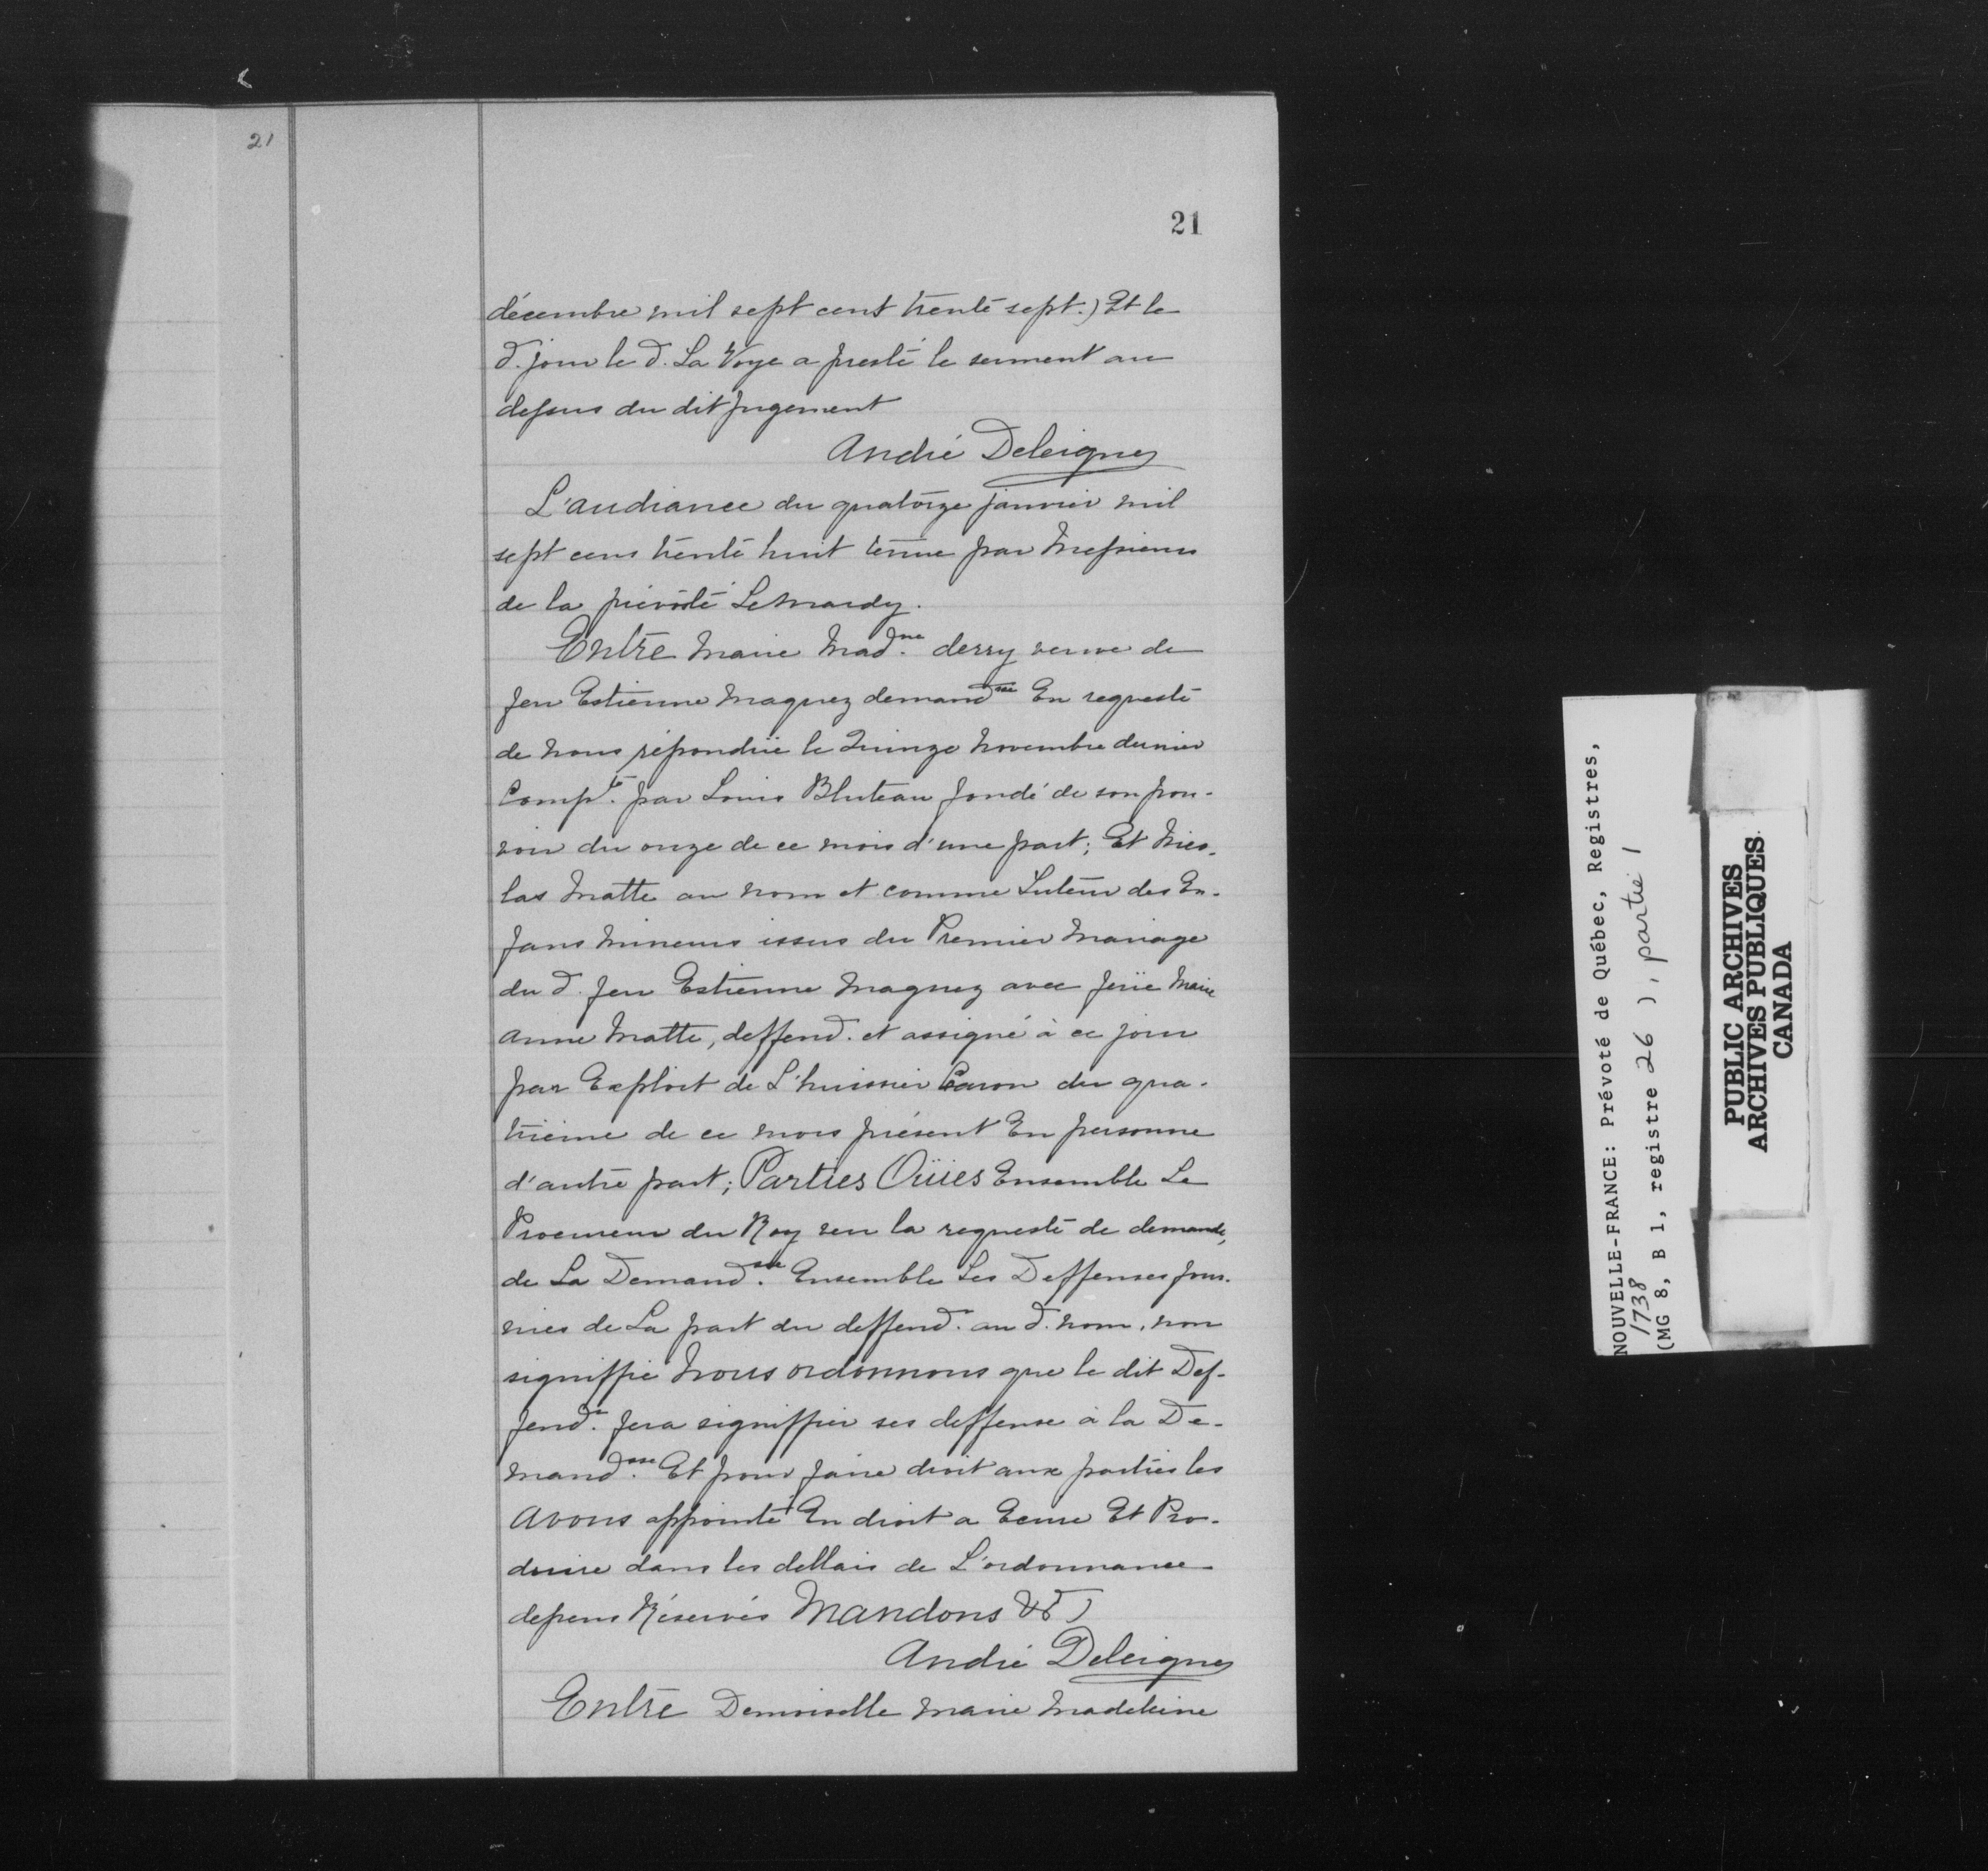 21
21
décembre mil sept cent trente sept.) Et le
d. jour le d. La Voye a presté le serment au
dessus du dit jugement
André Deleigne
L'audiance du quatorze janvier mil
sept cens trente huit tenue par Messieurs
de la prévôté Le Mardy.
Entre Marie Mad.ne derry veuve de
feu Estienne Maguez demand.sse En requeste
de nous répondüe le Quinze Novembre dernier
Comp.te par Louis Bluteau fondé de son pou-
voir du onze de ce mois d'une part; Et Nico-
las Matte au nom et comme Tuteur des En-
fans mineurs issus du Premier Mariage
du d. feu Estienne Maguez avec feüe Marie
Anne Matte, deffend. et assigné à ce jour
par Exploit de L'huissier Caron du qua-
trième de ce mois présent En personne
d'autre part; Parties Oüies Ensemble Le
Procureur du Roy veu la requeste de demande,
de La Demand.sse Ensemble Les Deffenses four-
nies de La part du deffend. au d. nom, non
signiffié Nous ordonnons que le dit Def-
fend.r fera signiffier ses deffense à la De-
mand.sse Et pour faire droit aux parties les
Avons appointé En droit a Ecrire Et Pro-
duire dans les dellais de L'ordonnance
depens Réservés Mandons &c
André Deleigne
Entre Demoiselle Marie Madeleine
NOUVELLE-FRANCE: Prévoté de Québec, Registres,
1738
(MG 8, B 1, registre 26 ), partie 1
PUBLIC ARCHIVES
ARCHIVES PUBLIQUES
CANADA